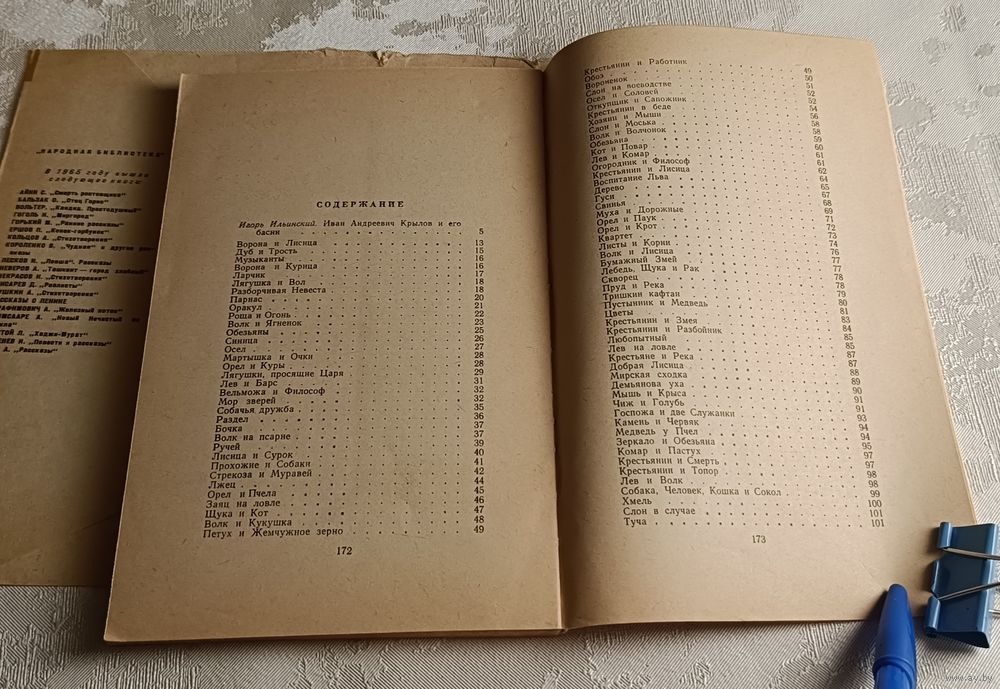 „НАРОДНАЯ БИБЛИОТЕКА"
В 1965 году вышли
следующие книги:
АЙНИ С. „Смерть ростовщика"
БАЛЬЗАК О. „Отец Горио"
ВОЛЬТЕР. „Кандид. Простодушный"
ГОГОЛЬ Н. „Миргород"
ГОРЬКИЙ М. „Ранние рассказы"
ЕРШОВ П. „Конек-горбунок"
КОЛЬЦОВ А. „Стихотворения"
КОРОЛЕНКО В. „Чудная" и другие
ЛЕСКОВ Н. „Левша". Рассказы
НЕВЕРОВ А. „Ташкент — город хлебный"
НЕКРАСОВ Н. „Стихотворения"
ПИСАРЕВ Д. „Реалисты"
ПУШКИН А. „Стихотворения"
РАССКАЗЫ О ЛЕНИНЕ
СЕРАФИМОВИЧ А. „Железный поток"
„Новый Нечистый
ТОЛСТОЙ Л. „Хаджи-Мурат"
„Повести и рассказы"
А. „Рассказы"
СОДЕРЖАНИЕ
Игорь Ильинский. Иван Андреевич Крылов и его
басни 5
Ворона и Лисица 13
Дуб и Трость 15
Музыканты 16
Ворона и Курица 16
Ларчик 17
Лягушка и Вол 18
Разборчивая Невеста 18
Парнас 20
Оракул 21
Роща и Огонь 22
Волк и Ягненок 23
Обезьяны 25
Синица 26
Осел 27
Мартышка и Очки 28
Орел и Куры 28
Лягушки, просящие Царя 29
Лев и Барс 31
Вельможа и Философ 32
Мор зверей 32
Собачья дружба 35
Раздел 36
Бочка 37
Волк на псарне 37
Ручей 39
Лисица и Сурок 40
Прохожие и Собаки 41
Стрекоза и Муравей 42
Лжец 44
Орел и Пчела 45
Заяц на ловле 46
Щука и Кот 47
Волк и Кукушка 48
Петух и Жемчужное зерно 49
172
Крестьянин и Работник 49
Обоз 50
Вороненок 51
Слон на воеводстве 52
Осел и Соловей 52
Откупщик и Сапожник 54
Крестьянин в беде 56
Хозяин и Мыши 58
Слон и Моська 58
Волк и Волчонок 59
Обезьяна 60
Кот и Повар 61
Лев и Комар 61
Огородник и Философ 62
Крестьянин и Лисица 64
Воспитание Льва 65
Дерево 67
Гуси 68
Свинья 69
Муха и Дорожные 71
Орел и Паук 72
Орел и Крот 73
Квартет 74
Листы и Корни 76
Волк и Лисица 77
Бумажный Змей 77
Лебедь, Щука и Рак 78
Скворец 78
Пруд и Река 79
Тришкин кафтан 80
Пустынник и Медведь 81
Цветы 83
Крестьянин и Змея 84
Крестьянин и Разбойник 85
Любопытный 85
Лев на ловле 87
Крестьяне и Река 87
Добрая Лисица 88
Мирская сходка 89
Демьянова уха 90
Мышь и Крыса 91
Чиж и Голубь 91
Госпожа и две Служанки 93
Камень и Червяк 94
Медведь у Пчел 94
Зеркало и Обезьяна 95
Комар и Пастух 97
Крестьянин и Смерть 97
Крестьянин и Топор 98
Лев и Волк 98
Собака, Человек, Кошка и Сокол 99
Хмель 100
Слон в случае 101
Туча 101
173
www.ay.by